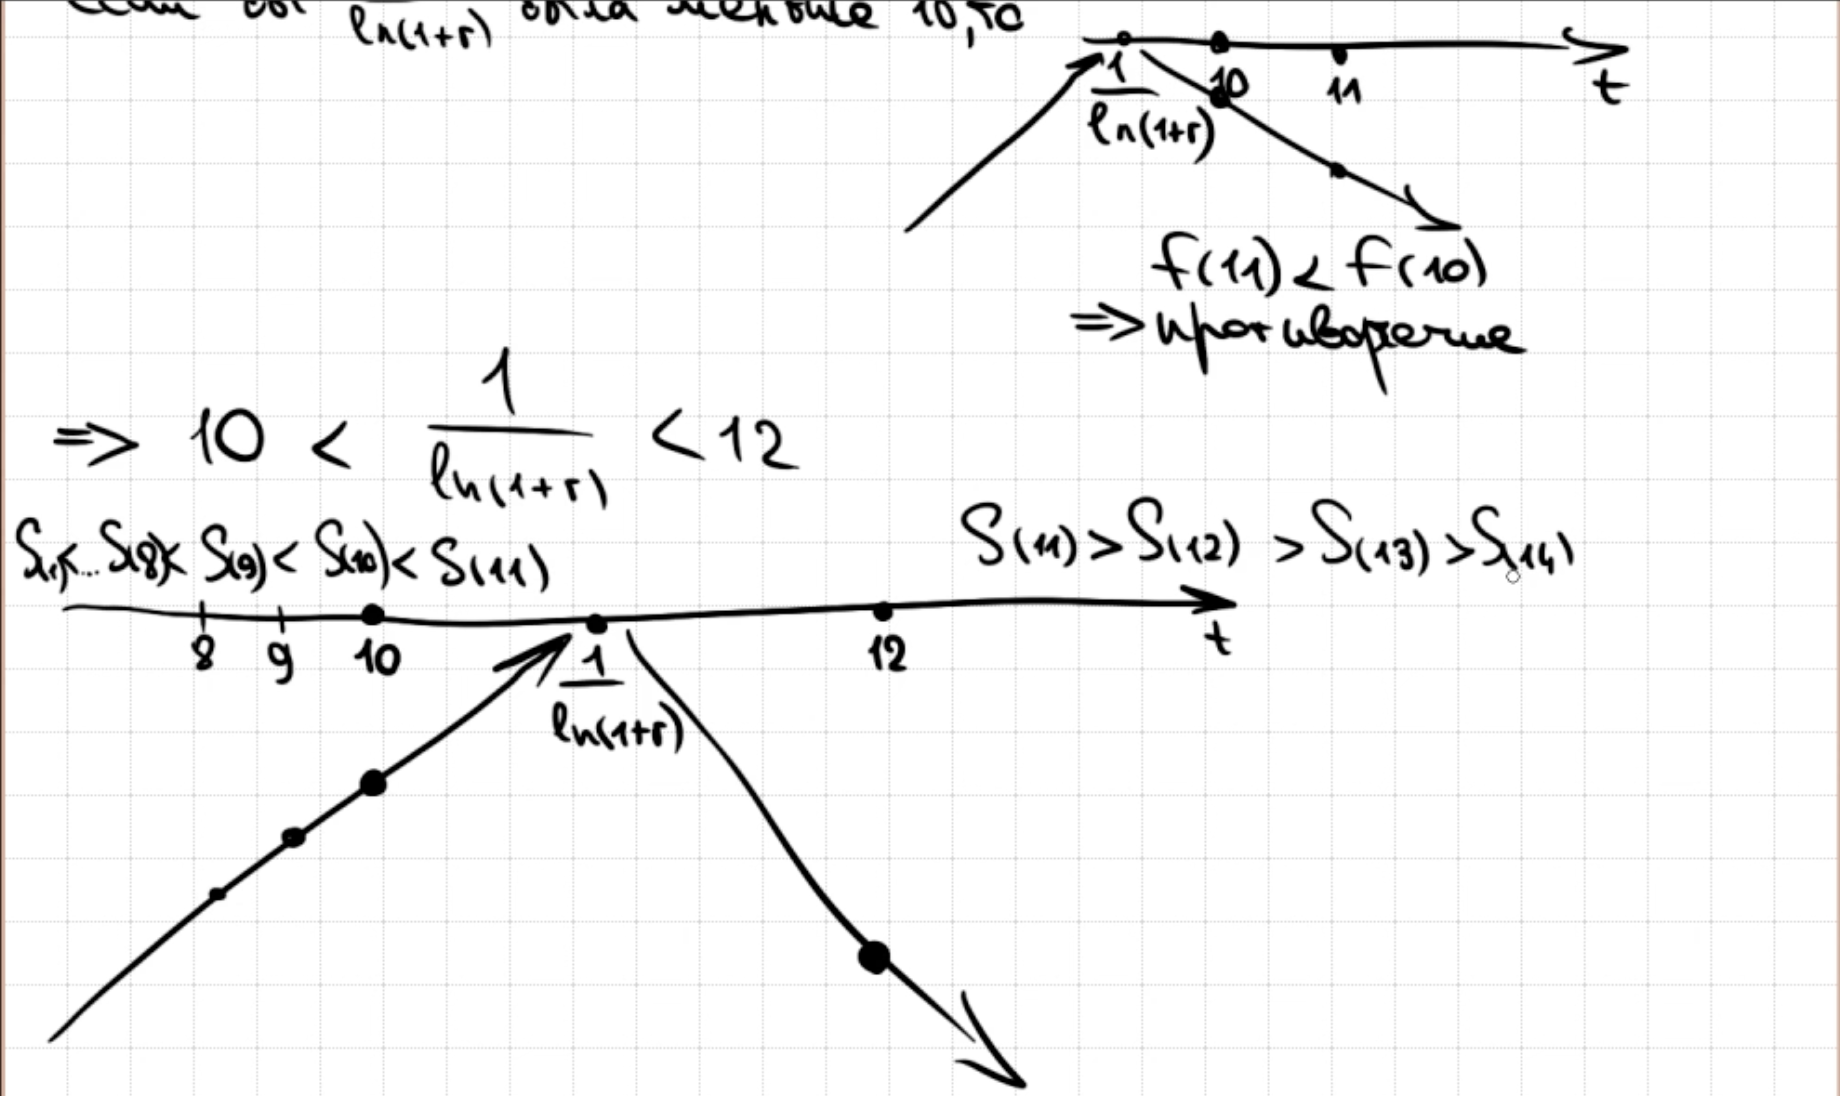 1/ln(1+r) была меньше 10, то
1/ln(1+r) 10 11 t
f(11) < f(10)
=> противоречие
=> 10 < 1/ln(1+r) < 12
S(1)<...S(8)< S(9)< S(10)< S(11)
S(11) > S(12) > S(13) > S(14)
8 9 10 1/ln(1+r) 12 t